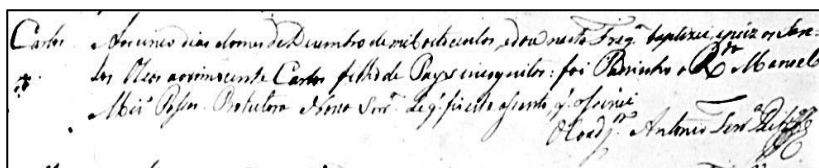 Carlos Aos cinco dias do mes de Dezembro de mil oitocentos, e dou nesta Freg.ª baptizei, e puz os San-
tos Oleos ao innocente Carlos filho de Pays incognitos: foi Padrinho o R.do Manoel
Protectora Nossa Senr.ª de q. fiz este assento q. assinei
O Coadj.or Antonio